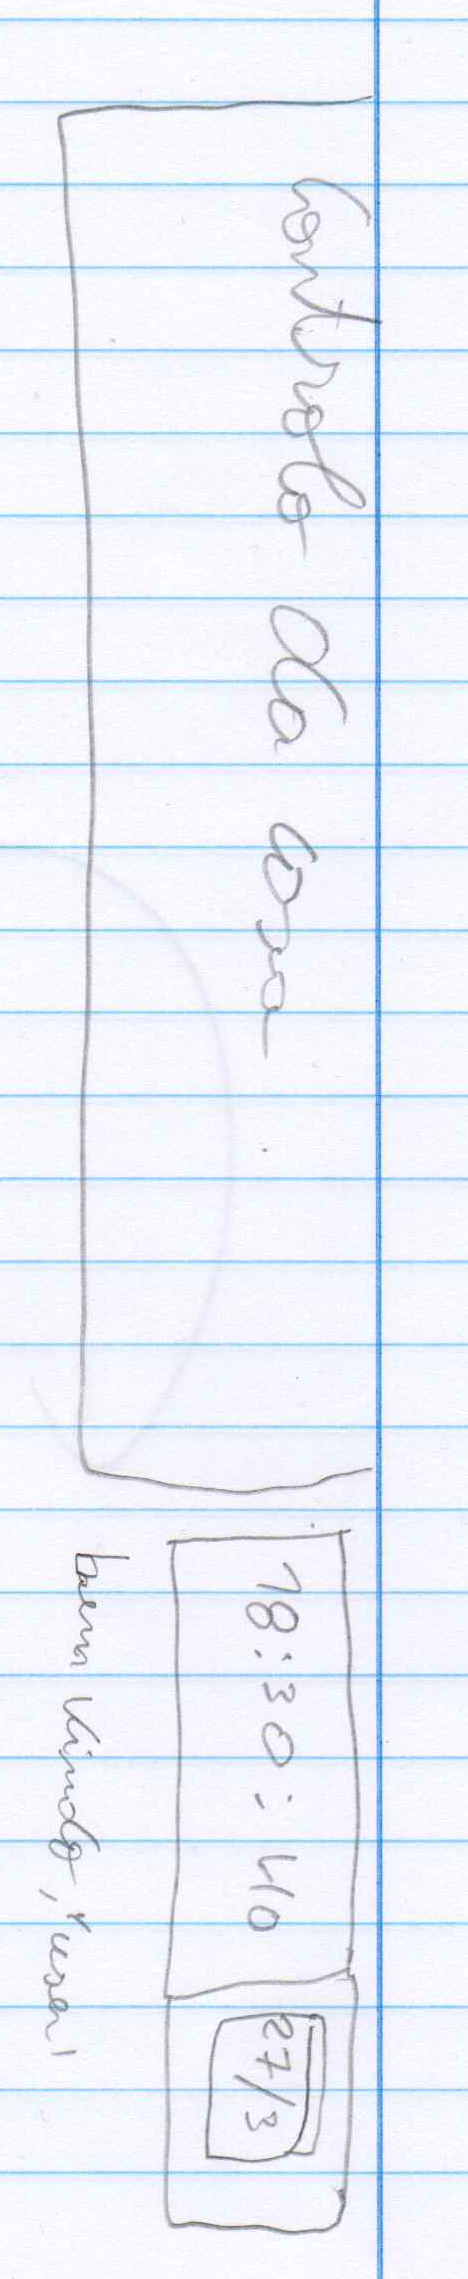 Controlo da casa
18:30:40
27/3
bem vindo, 'user'